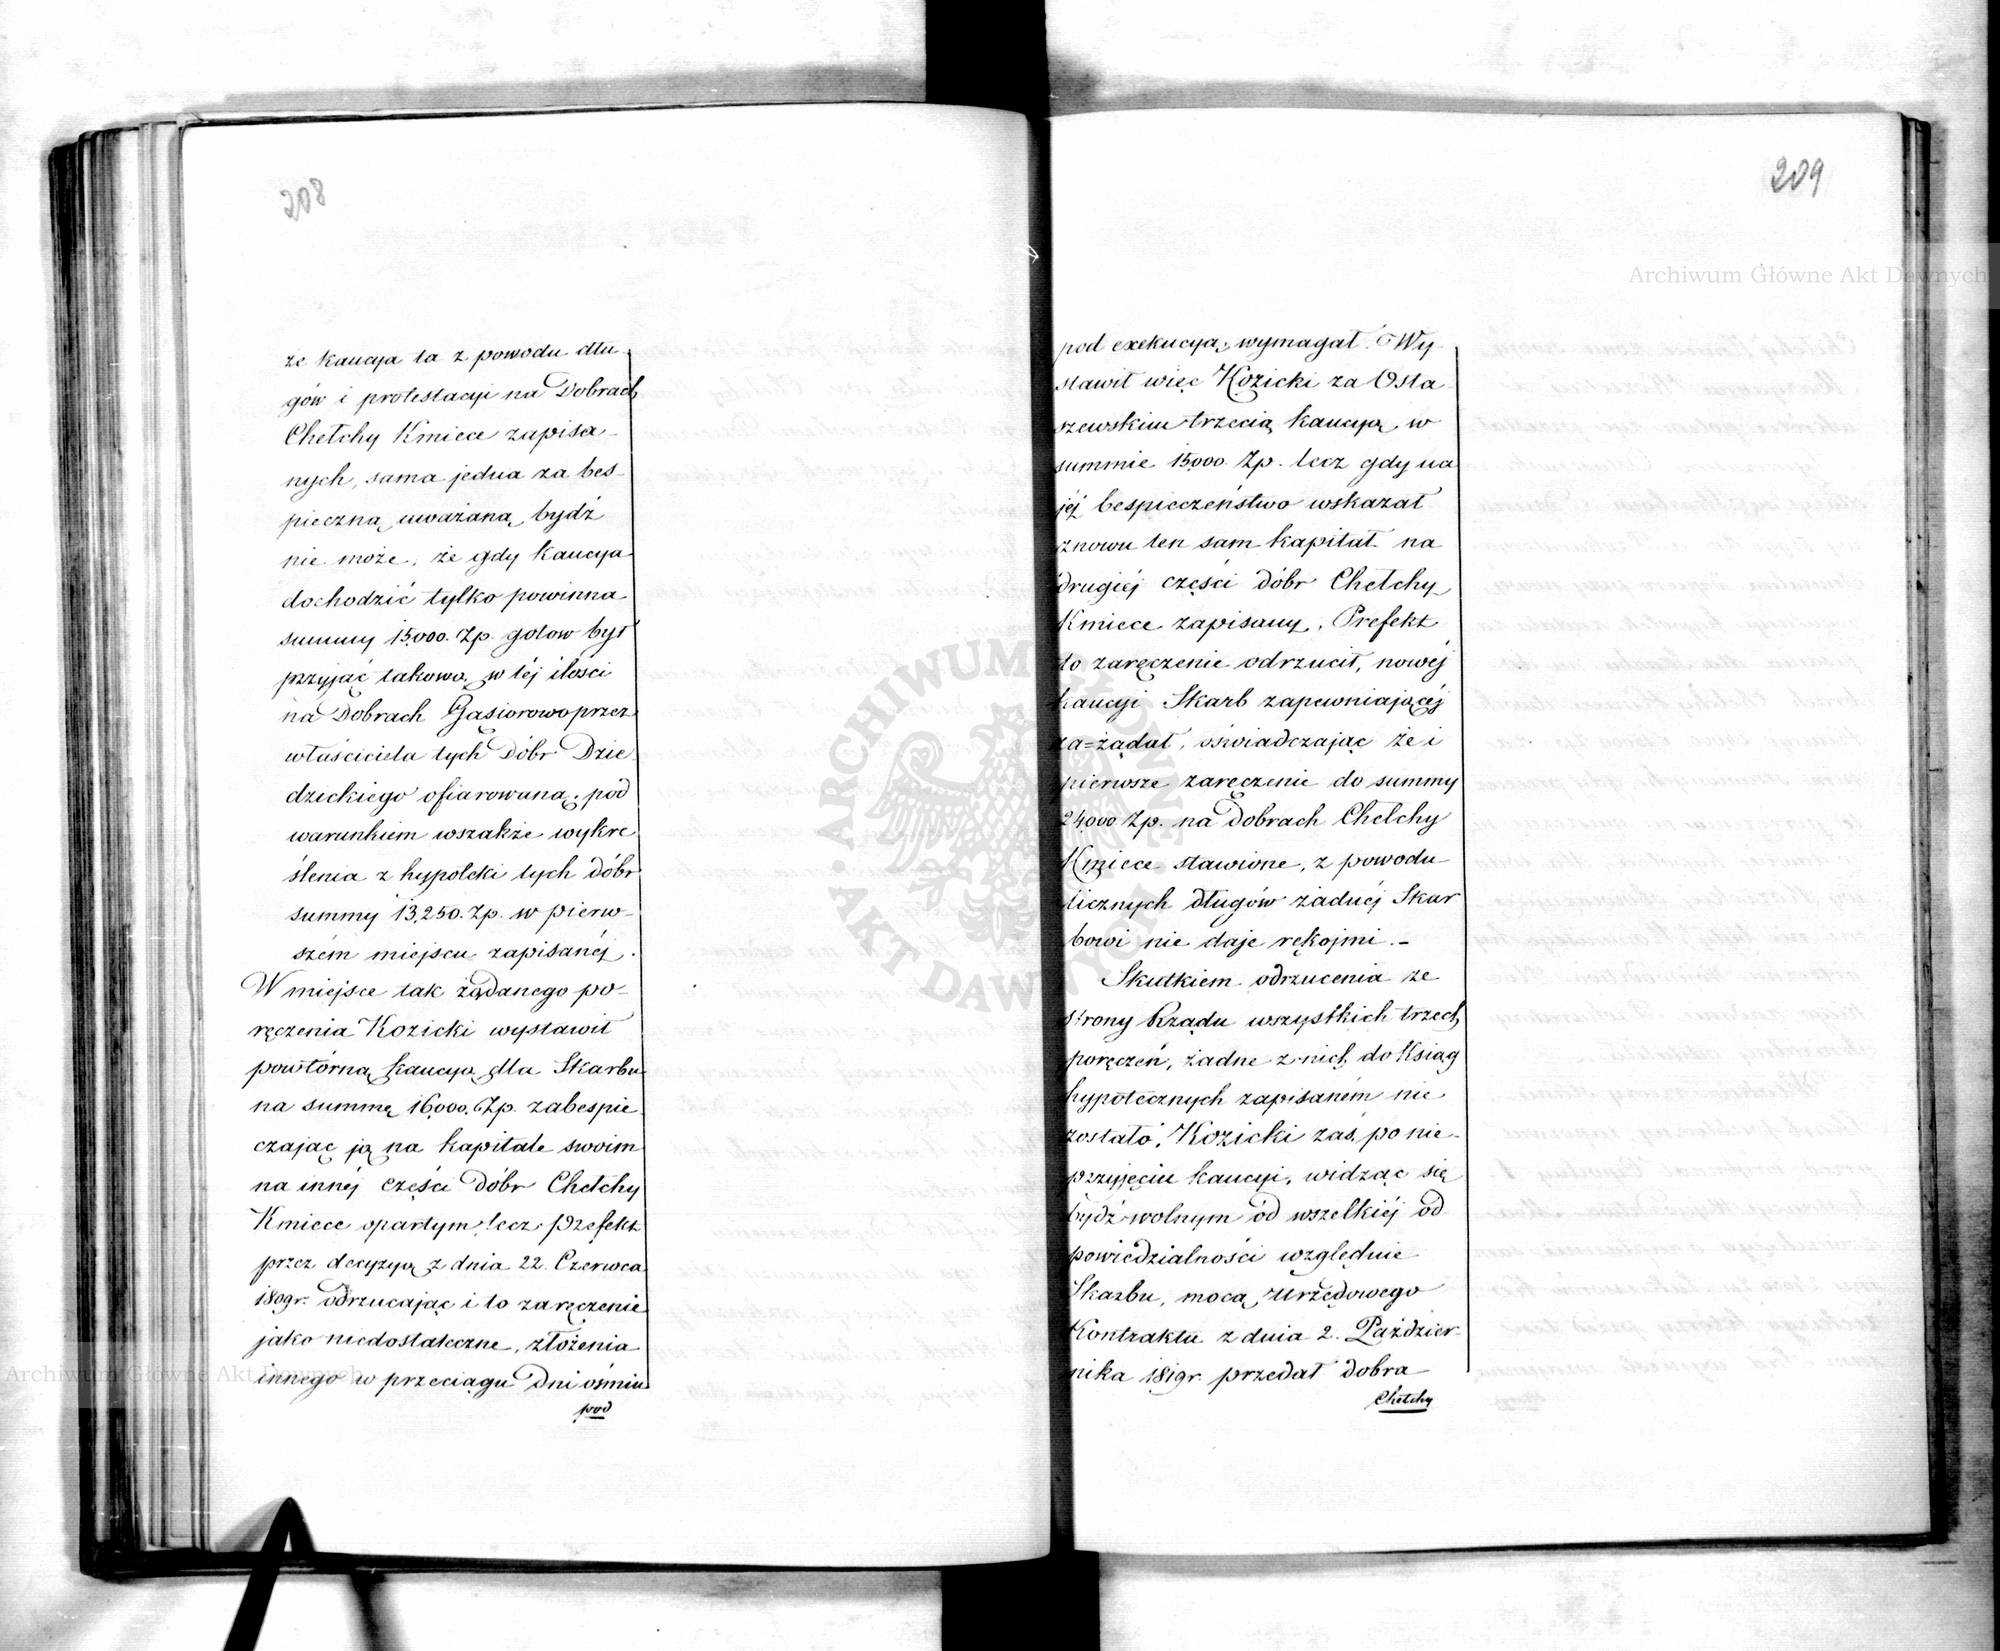 208
że kaucya ta z powodu dłu-
gów i protestacyi na Dobrach
Chełchy Kmiece zapisa-
nych, sama jedna za bes-
pieczną uważaną bydź
nie może, że gdy kaucya
dochodzić tylko powinna
summy 15,000. Zp. gotow był
przyjąć takową w téj ilości
na Dobrach Gąsiorowo przez
właściciela tych Dóbr Dzie-
dzickiego ofiarowaną, pod
warunkiem wszakże wykre-
ślenia z hypoteki tych dóbr
summy 13,250. Zp. w pierw-
szém miejscu zapisanéj.
W miejsce tak żądanego po-
ręczenia Kozicki wystawił
powtórną kaucyą dla Skarbu
na summę 16,000. Zp. zabespie-
czając ją na kapitale swoim
na innéj części Dóbr Chełchy
Kmiece opartym, lecz Prefekt
przez decyzyą z dnia 22. Czerwca
1809r. odrzucając i to zaręczenie
jako niedostateczne, złożenia
innego w przeciągu dni ośmiu
pod
209
pod exekucyą, wymagał. Wy-
stawił więc Kozicki za Osta-
szewskim trzecią kaucyą w
summie 15,000. Zp. lecz gdy na
jéj bespieczeństwo wskazał
znowu ten sam kapitał na
drugiéj części dóbr Chełchy
Kmiece zapisany, Prefekt
to zaręczenie odrzucił, nowéj
kaucyi Skarb zapewniającéj
za=żądał, oświadczając że i
pierwsze zaręczenie do summy
24,000 Zp. na Dobrach Chełchy
Kmiece stawione, z powodu
licznych długów żadnéj Skar-
bowi nie daje rękojmi. -
Skutkiem odrzucenia ze
strony Rządu wszystkich trzech
poręczeń, żadne z nich do Ksiąg
hypotecznych zapisaném nie
zostało, Kozicki zaś, po nie-
przyjęciu kaucyi, widząc się
bydź wolnym od wszelkiéj od-
powiedzialności względnie
Skarbu, mocą Urzędowego
Kontraktu z dnia 2. Paździer-
nika 1819r. przedał dobra
Chełchy
Archiwum Główne Akt Dawnych
Archiwum Główne Akt Dawnych
ARCHIWUM GŁÓWNE · AKT DAWNYCH ·